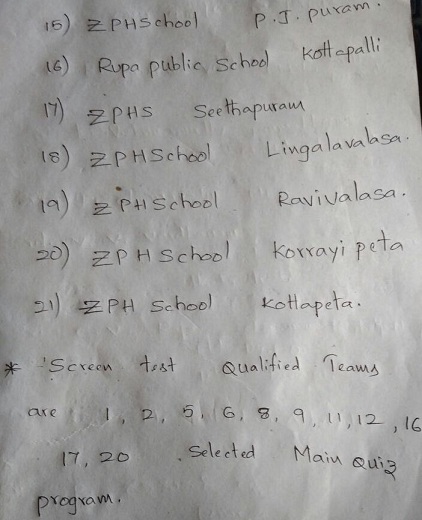 15) ZPHSchool P.J. Puram.
16) Rupa public School Kottapalli
17) ZPHS Seethapuram
18) ZPHSchool Lingalavalasa.
19) ZPHSchool Ravivalasa.
20) ZPH School Korrayi peta
21) ZPH School Kottapeta.
* 'Screen test Qualified Teams
are 1, 2, 5, 6, 8, 9, 11, 12, 16
17, 20 Selected Main Quiz
program.